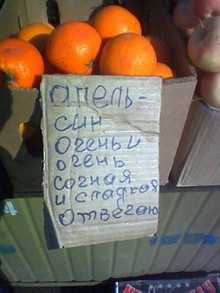 Опель-
син
Очень и
очень
Сочная
и сладкая
Отвечаю